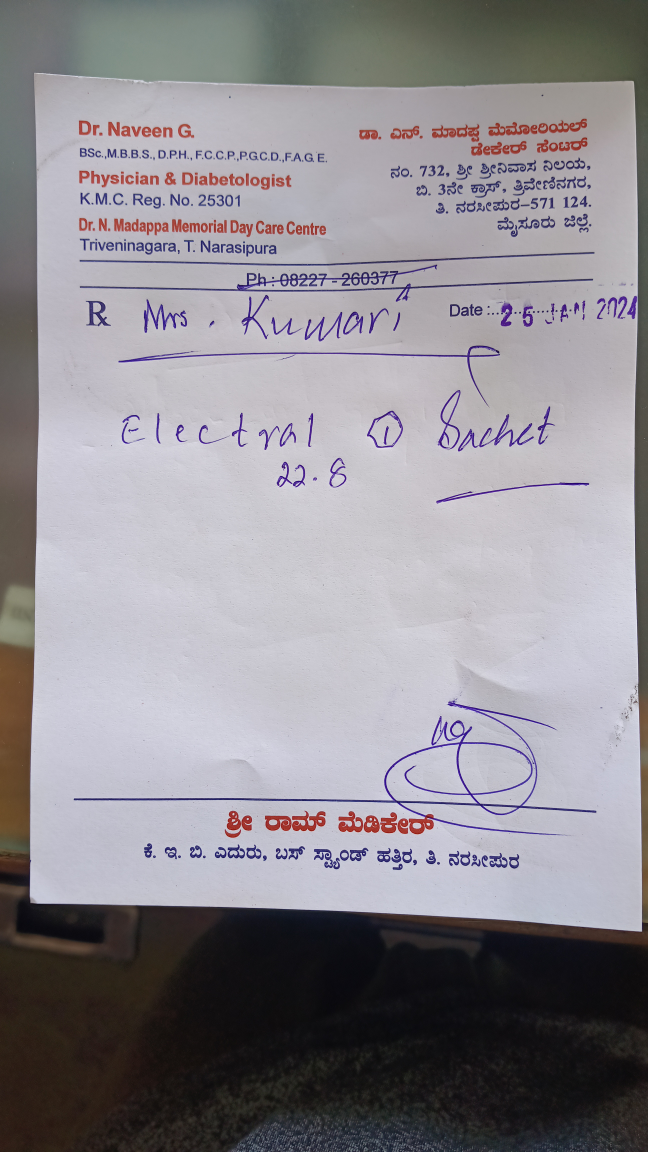 Dr. Naveen G.
BSc.,M.B.B.S., D.P.H., F.C.C.P.,P.G.C.D.,F.A.G.E.
Physician & Diabetologist
K.M.C. Reg. No. 25301
Dr. N. Madappa Memorial Day Care Centre
Triveninagara, T. Narasipura
ಡಾ. ಎನ್. ಮಾದಪ್ಪ ಮೆಮೋರಿಯಲ್
ಡೇಕೇರ್ ಸೆಂಟರ್
ನಂ. 732, ಶ್ರೀ ಶ್ರೀನಿವಾಸ ನಿಲಯ,
ಬಿ. 3ನೇ ಕ್ರಾಸ್, ತ್ರಿವೇಣಿನಗರ,
ತಿ. ನರಸೀಪುರ–571 124.
ಮೈಸೂರು ಜಿಲ್ಲೆ.
Ph : 08227 - 260377
℞ Mrs. Kumari Date : 25 JAN 2024
Electral ① Sachet
22.8
ಶ್ರೀ ರಾಮ್ ಮೆಡಿಕೇರ್
ಕೆ. ಇ. ಬಿ. ಎದುರು, ಬಸ್ ಸ್ಟ್ಯಾಂಡ್ ಹತ್ತಿರ, ತಿ. ನರಸೀಪುರ